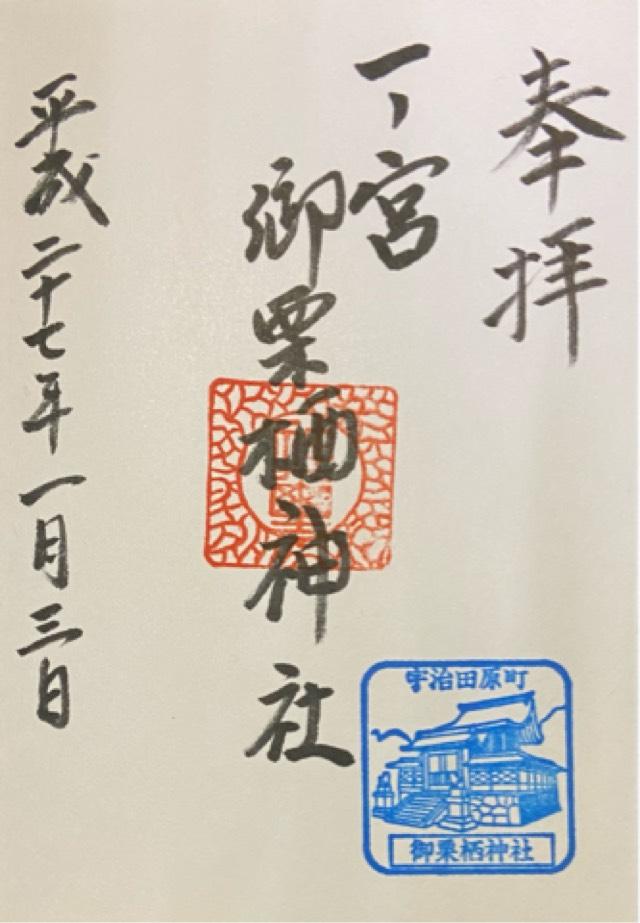 奉拝
一ノ宮
御栗栖神社
平成二十七年一月三日
宇治田原町
御栗栖神社